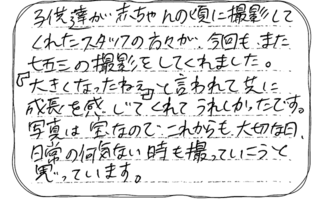 子供達が赤ちゃんの頃に撮影して
くれたスタッフの方々が、今回も、また
七五三の撮影をしてくれました。
『大きくなったねぇ』と言われて共に
成長を感じてくれてうれしかったです。
写真は宝なので、これからも、大切な日、
日常の何気ない時も撮っていこうと
思っています。